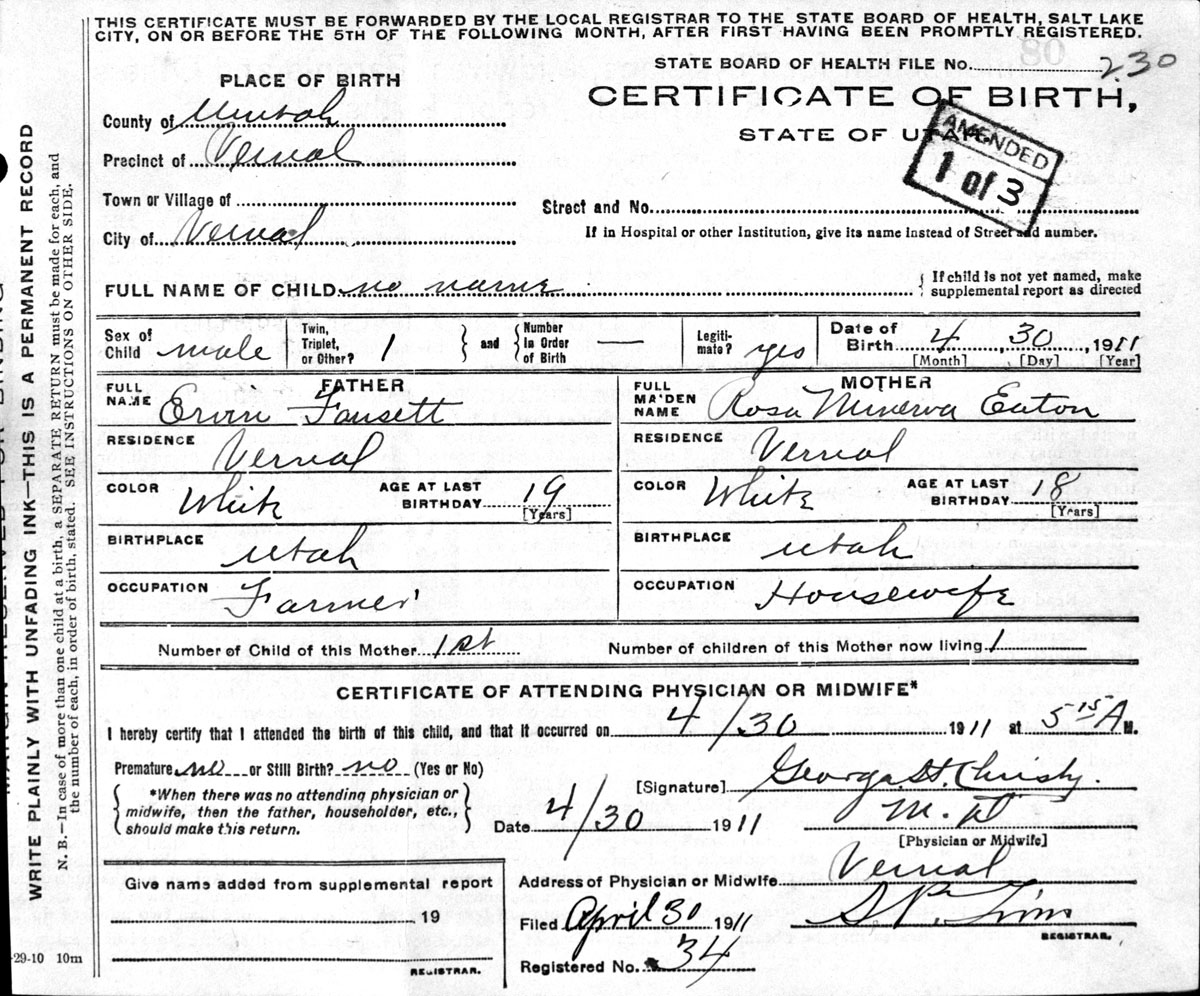 THIS CERTIFICATE MUST BE FORWARDED BY THE LOCAL REGISTRAR TO THE STATE BOARD OF HEALTH, SALT LAKE
CITY, ON OR BEFORE THE 5TH OF THE FOLLOWING MONTH, AFTER FIRST HAVING BEEN PROMPTLY REGISTERED.
STATE BOARD OF HEALTH FILE No. 230
PLACE OF BIRTH
CERTIFICATE OF BIRTH,
STATE OF UTAH
AMENDED
1 of 3
County of Uintah
Precinct of Vernal
Town or Village of
Street and No.
City of Vernal
If in Hospital or other Institution, give its name instead of Street and number.
FULL NAME OF CHILD no name
{ If child is not yet named, make
supplemental report as directed
Sex of Child male
Twin, Triplet, or Other? 1
} and { Number in Order of Birth —
Legiti-mate? yes
Date of Birth 4, 30, 1911
[Month] [Day] [Year]
FATHER
FULL NAME Ervin Fausett
RESIDENCE Vernal
COLOR White AGE AT LAST BIRTHDAY 19
[Years]
BIRTHPLACE Utah
OCCUPATION Farmer
MOTHER
FULL MAIDEN NAME Rosa Minerva Eaton
RESIDENCE Vernal
COLOR White AGE AT LAST BIRTHDAY 18
[Years]
BIRTHPLACE Utah
OCCUPATION Housewife
Number of Child of this Mother 1st Number of children of this Mother now living 1
CERTIFICATE OF ATTENDING PHYSICIAN OR MIDWIFE*
I hereby certify that I attended the birth of this child, and that it occurred on 4/30 1911 at 5 15 A M.
Premature no or Still Birth? no (Yes or No)
{ *When there was no attending physician or
midwife, then the father, householder, etc.,
should make this return. }
[Signature] George H. Christy.
M. D
Date 4/30 1911
[Physician or Midwife]
Give name added from supplemental report
19
REGISTRAR.
Address of Physician or Midwife Vernal
Filed April 30 1911
REGISTRAR.
Registered No. 34
WRITE PLAINLY WITH UNFADING INK—THIS IS A PERMANENT RECORD
N. B.—In case of more than one child at a birth, a SEPARATE RETURN must be made for each, and
the number of each, in order of birth, stated. SEE INSTRUCTIONS ON OTHER SIDE.
-29-10 10m